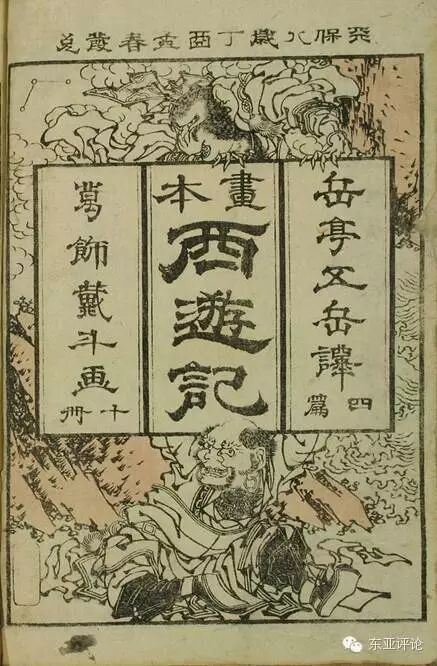 天保八歲丁酉孟春發兌
岳亭五岳譯
四篇
畫本
西遊記
葛飾戴斗画
十冊
东亚评论